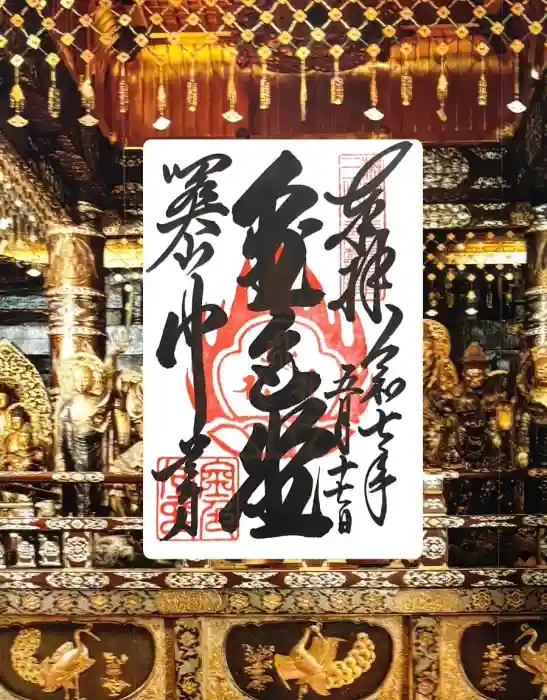 奉拝
令和七年
五月十七日
金色堂
關山中尊寺